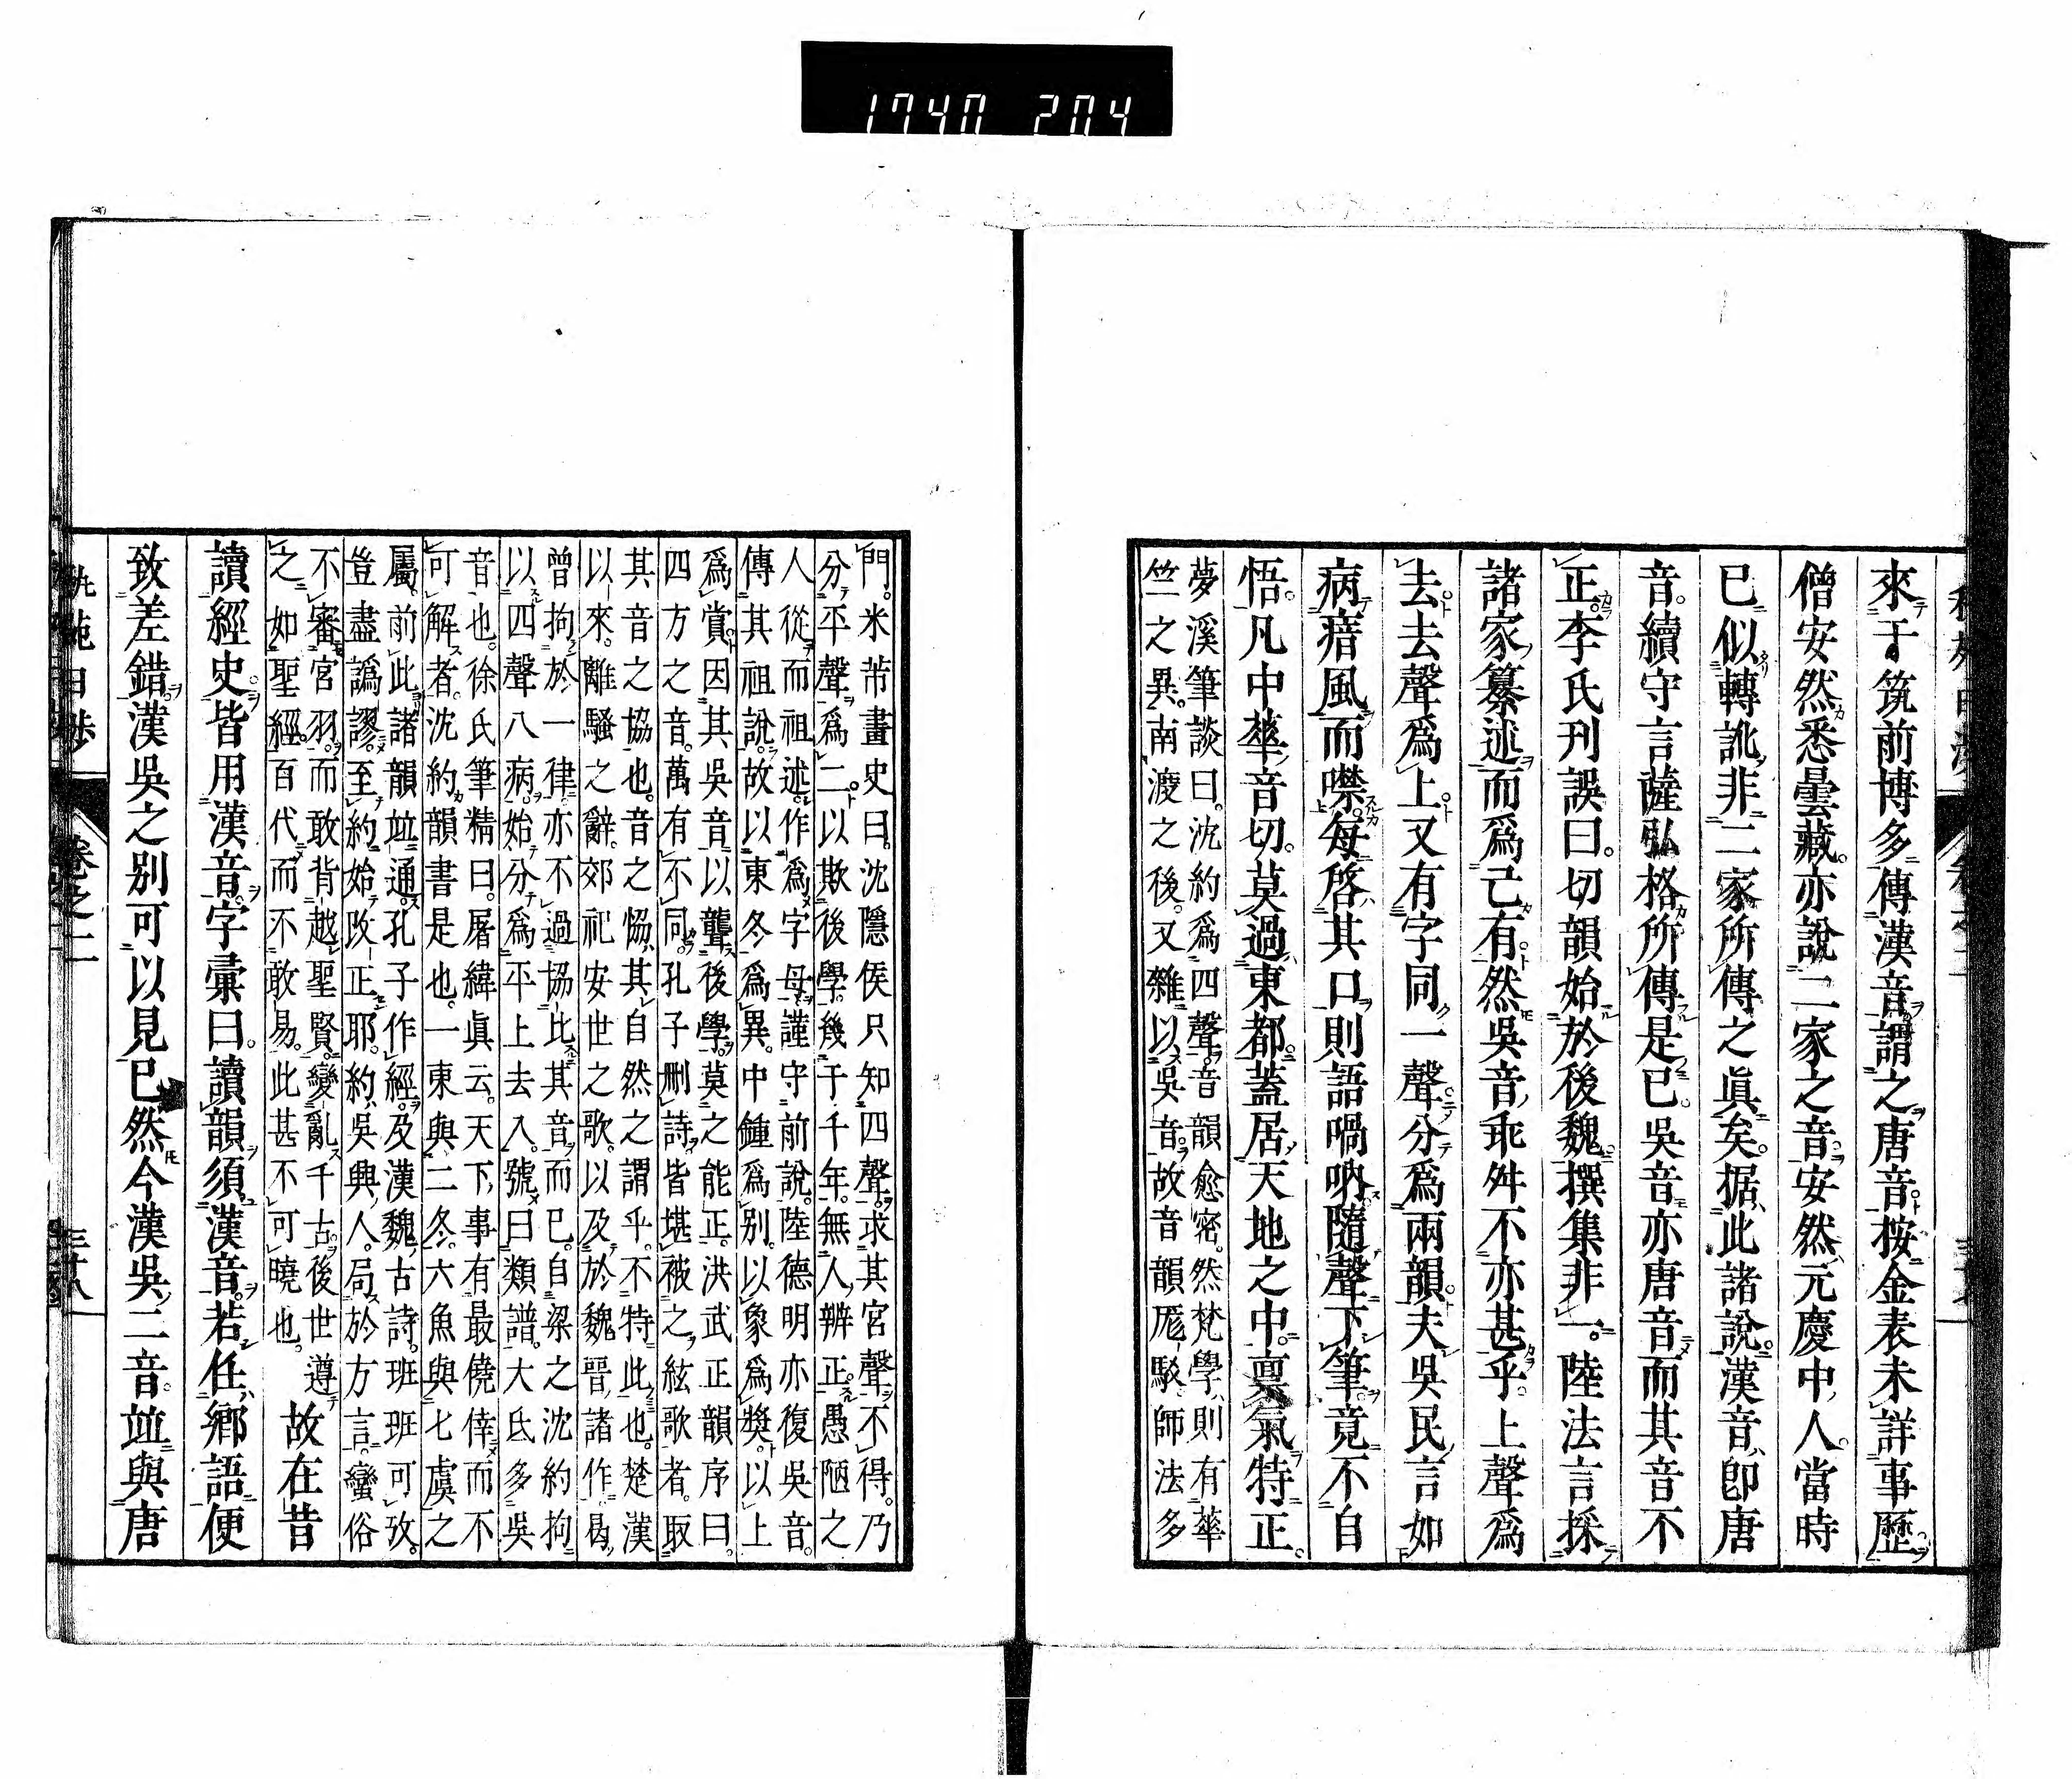 1740 204
來于筑前博多傳漢音謂之唐音按金表未詳事歷
僧安然悉曇藏亦說二家之音安然元慶中人當時
已似轉訛非二家所傳之眞矣据此諸說漢音卽唐
音續守言薩弘格所傳是已吳音亦唐音而其音不
正李氏刊誤曰切韻始於後魏撰集非一陸法言採
諸家纂述而爲己有然吳音乖舛不亦甚乎上聲爲
去去聲爲上又有字同一聲分爲兩韻夫吳民言如
病瘖風而噤每啓其口則語喎吶隨聲下筆竟不自
悟凡中華音切莫過東都蓋居天地之中稟氣特正
夢溪筆談曰沈約爲四聲音韻愈密然梵學則有華
竺之異南渡之後又雜以吳音故音韻厖駁師法多
門米芾畫史曰沈隱侯只知四聲求其宮聲不得乃
分平聲爲二以欺後學幾于千年無人辨正愚陋之
人從而祖述作爲字母謹守前說陸德明亦復吳音
傳其祖說故以東冬爲異中鍾爲別以象爲奬以上
爲賞因其吳音以聾後學莫之能正洪武正韻序曰
四方之音萬有不同孔子刪詩皆堪被之絃歌者取
其音之協也音之恊其自然之謂乎不特此也楚漢
以來離騷之辭郊祀安世之歌以及於魏晉諸作曷
曾拘於一律亦不過協比其音而已自梁之沈約拘
以四聲八病始分爲平上去入號曰類譜大氐多吳
音也徐氏筆精曰屠緯眞云天下事有最僥倖而不
可解者沈約韻書是也一東與二冬六魚與七虞之
屬前此諸韻竝通孔子作經及漢魏古詩班班可攷
豈盡譌謬至約始改正耶約吳興人局於方言蠻俗
不審宮羽而敢背越聖賢變亂千古後世遵
之如聖經百代而不敢易此甚不可曉也
故在昔
讀經史皆用漢音字彙曰讀韻須漢音若任鄉語便
致差錯漢吳之別可以見已然今漢吳二音竝與唐
卷之二
三十八